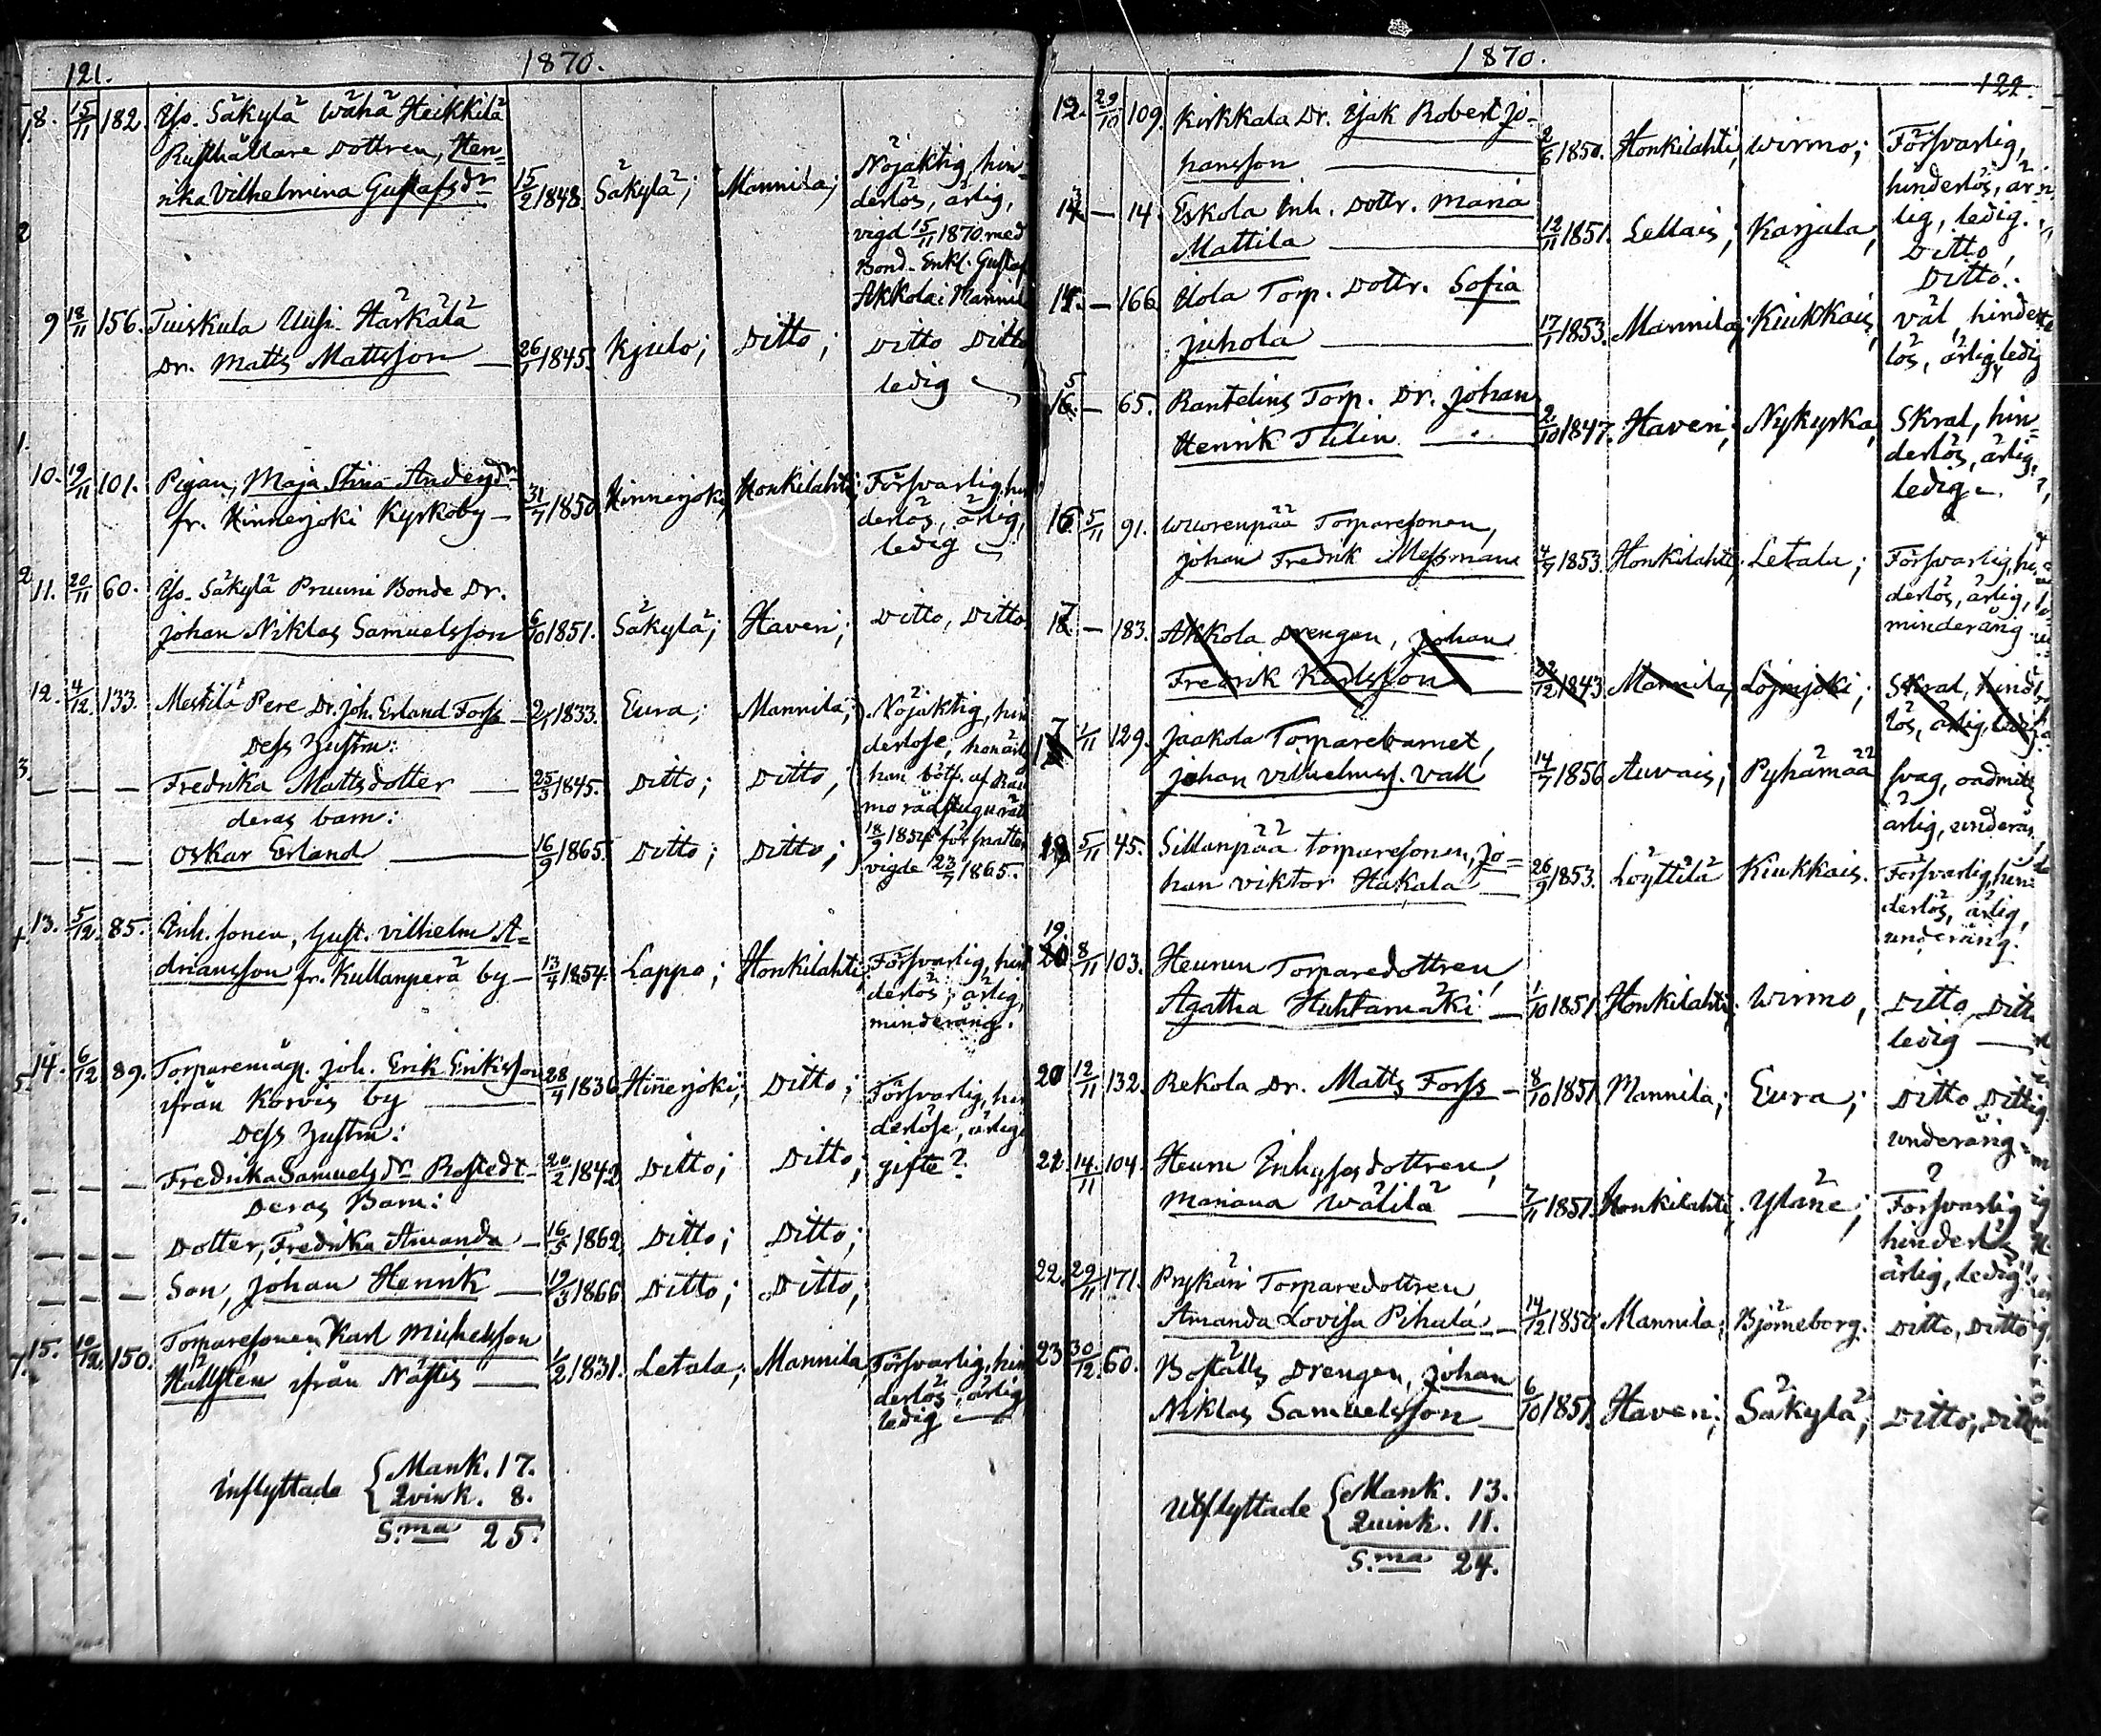 121.
1870.
8. 15/11 182. Yso. Säkylä Wähä Heikkilä
Rusthållare Dottren, Hen-
rika Vilhelmina Gustafsdr 15/2 1848. Säkylä; Mannila; Nöjaktig, hin-
derlös, ärlig,
vigd 15/11 1870 med
Bond. Enkl. Gustaf
Akkola i Mannila
9 18/11 156. Tuiskula Uusi-Härkälä
Dr. Matts Mattsson — 26/1 1845. Kjulo; Ditto; Ditto Ditto
ledig
10. 19/11 101. Pigan, Maja Stina Andersdr
fr. Hinnerjoki Kyrkoby — 31/7 1850 Hinnerjoki; Honkilahti; Försvarlig, hin
derlös, ärlig,
ledig
11. 20/11 60. Yso-Säkylä Pruuni Bonde Dr.
Johan Niklas Samuelsson 6/10 1851. Säkylä; Haveri; Ditto, Ditto
12. 4/12. 133. Mestilä Pere Dr. Joh. Erland Forss — 2/1 1833. Eura; Mannila; Nöjaktig, hin
derlöse, hon ärl
Dess Hustru:
— — — Fredrika Mattsdotter — 25/3 1845. Ditto; Ditto; han bötf. af Rau
mo rådstugurätt
deras barn:
18/9 1854 för snatteri
— — — Oskar Erland — 16/9 1865. Ditto; Ditto; vigde 23/7 1865.
13. 5/12. 85. Inh. sonen, Gust. Vilhelm A-
driansson fr. Kullanperä by — 13/4 1854. Lappo; Honkilahti; Försvarlig, hin
derlös, ärlig,
minderårig.
14. 6/12 89. Torparemåg. Joh. Erik Eriksson 28/4 1836 Hinnerjoki; Ditto; Försvarlig, hin
ifrån Korvis by — derlöse, ärlige
Dess Hustru:
— — — Fredrika Samuelsdr Rostedt — 20/2 1842 Ditto; Ditto; gifte?
Deras Barn:
— — — Dotter, Fredrika Amanda — 16/5 1862 Ditto; Ditto;
— — — Son, Johan Henrik — 19/3 1866 Ditto; Ditto;
15. 10/12. 150. Torparesonen Karl Michelsson
Hällsten ifrån Nästis — 1/2 1831. Letala; Mannila Försvarlig, hin
derlös, ärlig
ledig
Inflyttade { Mank. 17.
Qvink. 8.
S:ma 25.
1870.
122.
12. 29/10 109. Kirkkala Dr. Isak Robert Jo-
hansson — 2/6 1850. Honkilahti; Wirmo; Försvarlig,
hinderlös, är
lig, ledig.
14. — 14. Eskola Inh. Dottr. Maria
Mattila — 12/11 1851. Lellais; Karjala; Ditto,
Ditto.
— 166 Uola Torp. Dottr. Sofia
Juhola — 17/1 1853. Mannila; Kiukkais; väl, hinder
lös, ärlig, ledig
15 — 65. Rantelins Torp. Dr. Johan
Henrik Tulin — 2/10 1847. Haveri; Nykyrka; Skral, hin-
derlös, ärlig,
ledig.
16. 5/11 91. Wuorenpää Torparesonen,
Johan Fredrik Messman 4/7 1853. Honkilahti; Letala; Försvarlig, hin
derlös, ärlig,
minderårig.
— 183. Akkola Drengen, Johan
Fredrik Karlsson — 22/12 1843 Mannila; Loimijoki; Skral, hind
lös, ärlig, ledig
17 1/11 129. Jaakola Torparebarnet,
Johan Vilhelmss. Vall 14/7 1856 Auvais; Pyhämaa svag, oadmit
ärlig, underår
18 5/11 45. Sillanpää torparesonen, Jo=
han Viktor Hakala — 26/9 1853. Löyttilä Kiukkais. Försvarlig, hin
derlös, ärlig,
underårig.
19. 8/11 103. Heurun Torparedottren,
Agatha Huhtamäki — 1/10 1851 Honkilahti; Wirmo, Ditto, Ditto
ledig —
20 12/11 132. Rekola Dr. Matts Forss — 8/10 1851 Mannila; Eura; Ditto Ditto
underårig.
21. 14/11 104. Heuru Inhyses dottren,
Mariana Wälilä — 7/11 1851. Honkilahti; Yläne; Försvarlig
hinderlös
ärlig, ledig.
22. 29/11 171. Prykäri Torparedottren,
Amanda Lovisa Pihala — 14/12 1850 Mannila; Björneborg. Ditto, Ditto
23 30/12. 60. Boställs Drengen, Johan
Niklas Samuelsson — 6/10 1851. Haveri; Säkylä; Ditto, Ditto
Utflyttade { Mank. 13.
Quink. 11.
S:ma 24.